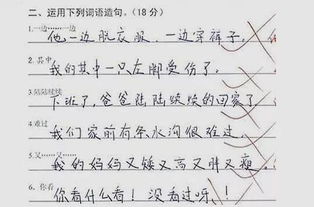 二、运用下列词语造句。(18分)
1.一边……一边……
他一边脱衣服，一边穿裤子。
2.其中
我的其中一只左脚受伤了。
3.陆陆续续
下班了，爸爸陆陆续续的回家了。
4.难过
我们家前有条水沟很难过。
5.又……又……
我的妈妈又矮又高又胖又瘦。
6.你看
你看什么看！没看过呀！！